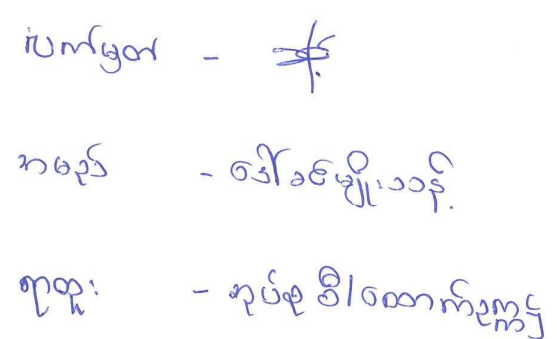 လက်မှတ် -
အမည် - ဒေါ်ခင်မျိုးသန့်
ရာထူး - အုပ်စု စီ/ထောက်ဥက္ကဋ္ဌ